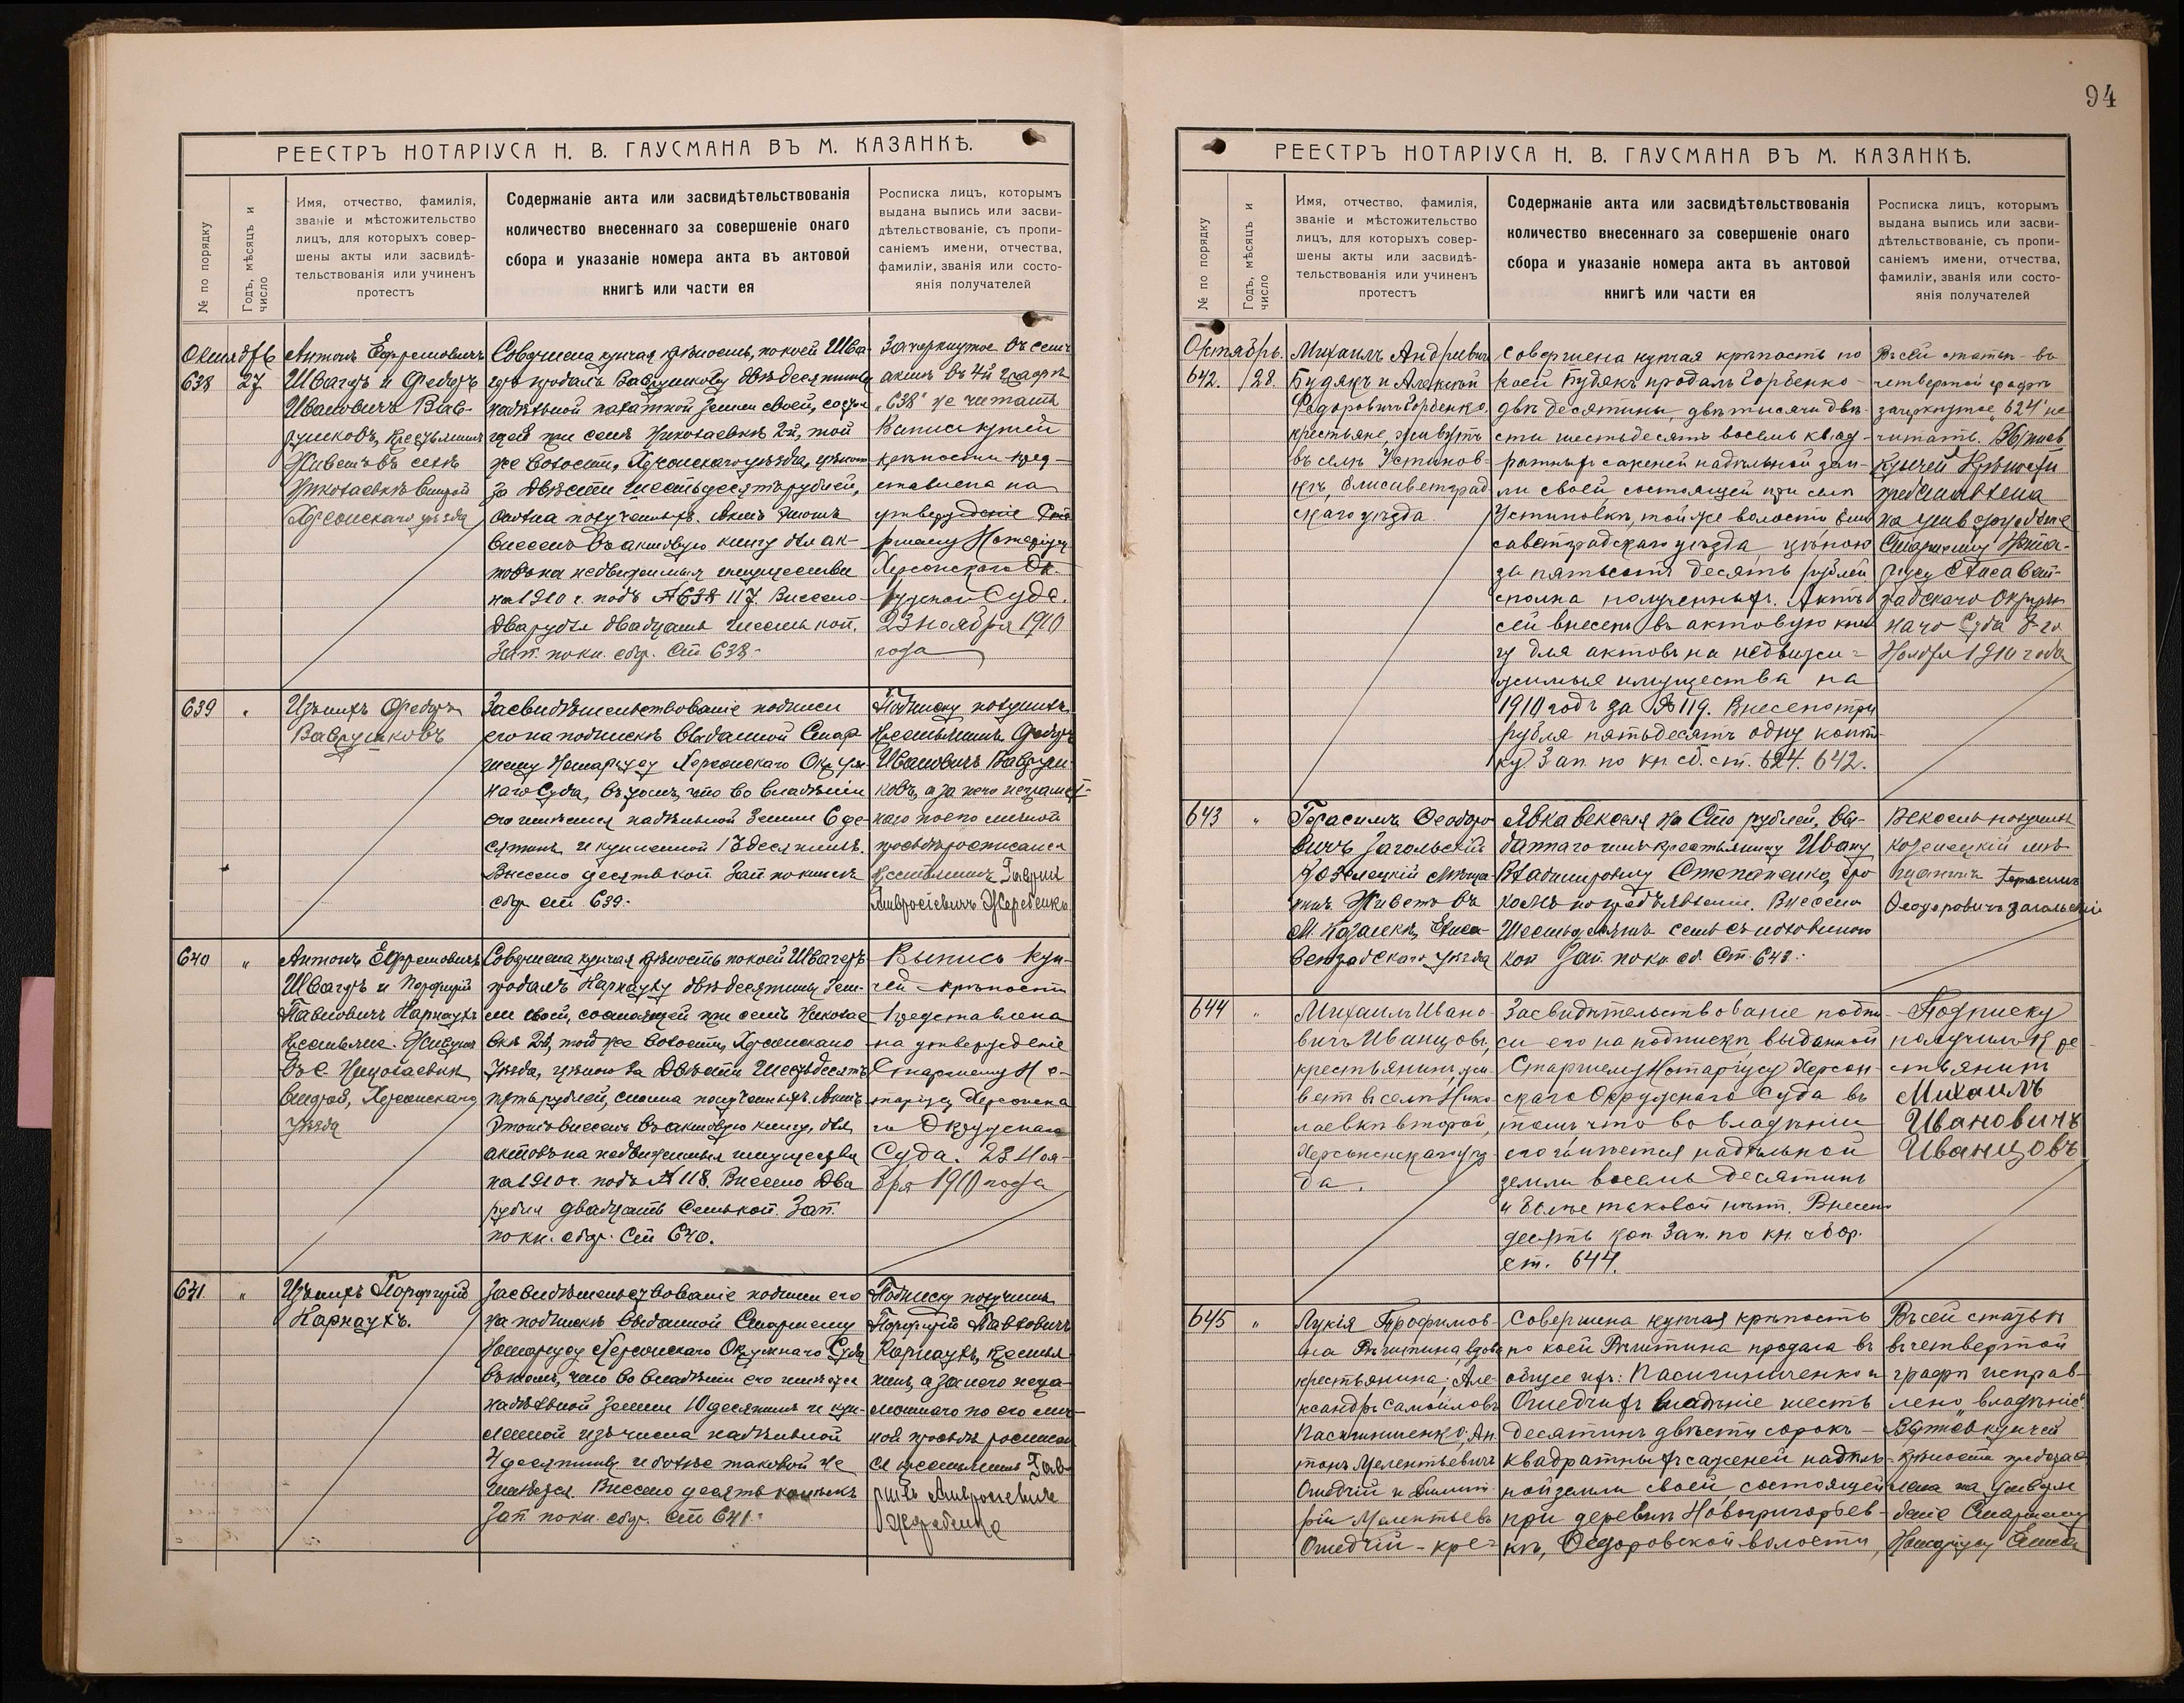 94
РЕЕСТРЪ НОТАРІУСА Н. В. ГАУСМАНА ВЪ М. КАЗАНКѢ.
№ по порядку
Годъ, мѣсяцъ и
число
Имя, отчество, фамилія,
званіе и мѣстожительство
лицъ, для которыхъ совер-
шены акты или засвидѣ-
тельствованія или учиненъ
протестъ
Содержаніе акта или засвидѣтельствованія
количество внесеннаго за совершеніе онаго
сбора и указаніе номера акта въ актовой
книгѣ или части ея
Росписка лицъ, которымъ
выдана выпись или засви-
дѣтельствованіе, съ пропи-
саніемъ имени, отчества,
фамиліи, званія или состо-
янія получателей
Октябрь
638
27
Антонъ Ефремовичъ
Швагеръ и Федоръ
Ивановичъ Вав-
рушковъ, крестьянинъ
Живетъ въ селѣ
Николаевкѣ второй
Херсонскаго уѣзда
Совершена купчая крѣпость, по коей Шва-
геръ продалъ Ваврушкову двѣ десятины
надѣльной пахатной земли своей, состоя
щей при селѣ Николаевкѣ 2й, той
же волости, Херсонскаго уѣзда, цѣною
за Двѣсти шестьдесятъ рублей,
сполна полученныхъ. Актъ этотъ
внесенъ въ актовую книгу для ак-
товъ на недвижимыя имущества
на 1910 г. подъ № 638 117. Внесено
два рубля двадцать шесть коп.
Зап. по кн. сбор. Ст. 638.
Зачеркнутое въ семъ
актѣ въ 4й графѣ
„638" не читать
Выпись купчей
крѣпости пред-
ставлена на
утвержденіе Ста
ршему Нотаріусу
Херсонскаго Ок-
ружнаго Суда.
23 ноября 1910
года
639
"
Изъ нихъ Федоръ
Ваврушковъ
Засвидѣтельствованіе подписи
его на подпискѣ выданной Стар-
шему Нотаріусу Херсонскаго Окруж
наго Суда, въ томъ, что во владѣніи
его имѣется надѣльной земли 6 де-
сятинъ и купленной 13 десятинъ.
Внесено десять коп. Зап. по книгѣ
сбор. ст. 639.
Подписку получилъ
крестьянинъ Федоръ
Ивановичъ Вавруш-
ковъ, а за него неграмот-
наго по его личной
просьбѣ росписался
крестьянинъ Гавріилъ
Амвросіевичъ Жеребенко
640
"
Антонъ Ефремовичъ
Швагеръ и Порфирій
Павловичъ Карнаухъ
крестьяне. Живутъ
въ с. Николаевкѣ
второй, Херсонскаго
уѣзда
Совершена купчая крѣпость по коей Швагеръ
продалъ Карнауху двѣ десятины зем-
ли своей, состоящей при селѣ Николае
вкѣ 2й, той же волости, Херсонскаго
уѣзда, цѣною за Двѣсти шестьдесятъ
пять рублей, сполна полученныхъ. Актъ
этотъ внесенъ въ актовую книгу, для
актовъ на недвижимыя имущества
на 1910 г. подъ № 118. Внесено Два
рубля двадцать семь коп. Зап.
по кн. сбор. Ст. 640.
Выпись куп-
чей крѣпости
представлена
на утвержденіе
Старшему Но-
таріусу Херсонска
го Окружнаго
Суда. 23 Ноя-
бря 1910 года
641
"
Изъ нихъ Порфирій
Карнаухъ.
Засвидѣтельствованіе подписи его
на подпискѣ выданной Старшему
Нотаріусу Херсонскаго Окружнаго Суда
въ томъ, что во владѣніи его имѣется
надѣльной земли 10 десятинъ и куп-
ленной изъ числа надѣльной
4 десятины и болѣе таковой не
имѣется. Внесено десять копѣекъ
Зап. по кн. сбор. Ст. 641.
Подписку получилъ
Порфирій Павловичъ
Карнаухъ, крестья
нинъ, а за него негра-
мотнаго по его лич-
ной просьбѣ росписал
ся крестьянинъ Гав-
ріилъ Амвросіевичъ
Жеребенко
РЕЕСТРЪ НОТАРІУСА Н. В. ГАУСМАНА ВЪ М. КАЗАНКѢ.
№ по порядку
Годъ, мѣсяцъ и
число
Имя, отчество, фамилія,
званіе и мѣстожительство
лицъ, для которыхъ совер-
шены акты или засвидѣ-
тельствованія или учиненъ
протестъ
Содержаніе акта или засвидѣтельствованія
количество внесеннаго за совершеніе онаго
сбора и указаніе номера акта въ актовой
книгѣ или части ея
Росписка лицъ, которымъ
выдана выпись или засви-
дѣтельствованіе, съ пропи-
саніемъ имени, отчества,
фамиліи, званія или состо-
янія получателей
Октябрь.
642.
28.
Михаилъ Андреевичъ
Будякъ и Алексѣй
Федоровичъ Горбенко,
крестьяне, живутъ
въ селѣ Устинов-
кѣ, Елисаветград
скаго уѣзда.
Совершена купчая крѣпость по
коей Будякъ продалъ Горбенко
двѣ десятины, двѣ тысячи двѣ-
сти шестьдесятъ восемь квад-
ратныхъ саженей надѣльной зем-
ли своей состоящей при селѣ
Устиновкѣ, той же волости Ели
саветградскаго уѣзда цѣною
за пятьсотъ десять рублей
сполна полученныхъ. Актъ
сей внесенъ въ актовую кни
гу для актовъ на недвижи-
жимыя имущества на
1910 годъ за № 119. Внесено три
рубля пятьдесятъ одну копѣй-
ку Зап. по кн. сб. ст. 624. 642.
Въ сей статьѣ во
четвертой графѣ
зачеркнутое „624" не
читать. Выпись
купчей крѣпости
представлена
на утвержденіе
Старшему Нота-
ріусу Елисавет-
градскаго Окруж
наго Суда 8-го
Ноября 1910 года
643
"
Герасимъ Феодоро
вичъ Загольскій
Козелецкій мѣща
нинъ. Живетъ въ
м. Казанкѣ, Елиса-
ветградскаго уѣзда
Явка векселя на Сто рублей, вы-
даннаго имъ крестьянину Ивану
Владимировичу Степаненко, сро
комъ по предъявленіи. Внесено
Шестьдесятъ семь съ половиною
коп. Зап. по кн. сб. Ст. 643.
Вексель получилъ
козелецкій мѣ-
щанинъ Герасимъ
Феодоровичъ Загольскій
644
"
Михаилъ Ивано-
вичъ Иванцовъ,
крестьянинъ, жи
ветъ въ селѣ Нико
лаевкѣ второй,
Херсонскаго уѣз-
да.
Засвидѣтельствованіе подпи-
си его на подпискѣ, выданной
Старшему Нотаріусу Херсон-
скаго Окружнаго Суда въ
томъ, что во владѣніи
его имѣется надѣльной
земли восемь десятинъ
и болѣе таковой нѣтъ. Внесено
десять коп. Зап. по кн. сбор.
ст. 644.
Подписку
получилъ Кре-
стьянинъ
Михаилъ
Ивановичъ
Иванцовъ
645
"
Лукія Трофимов-
на Рѣчитина, вдова
крестьянина, Але-
ксандръ Самойловъ
Пасичниченко, Ан
тонъ Мелентьевичъ
Ошедчій и Дмит-
рій Мелентьевъ
Ошедчій - кре-
Совершена купчая крѣпость
по коей Рѣчитина продала въ
общее ихъ: Пасичниченко и
Ошедчихъ владѣніе шесть
десятинъ двѣсти сорокъ
квадратныхъ саженей надѣль-
ной земли своей состоящей
при деревнѣ Новогригорьев-
кѣ, Федоровской волости,
Въ сей статьѣ
въ четвертой
графѣ исправ-
лено „владѣніе".
Выпись купчей
крѣпости представ
лена на утверж
деніе Старшему
Нотаріусу Елиса